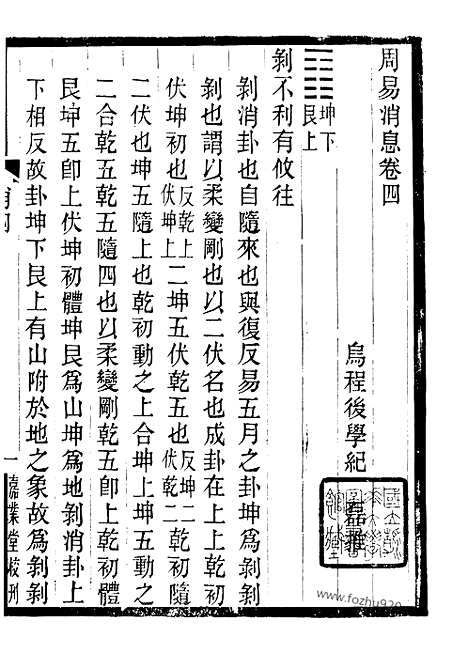 周易消息卷四
烏程後學紀磊譔
坤下
艮上
剝不利有攸往
剝消卦也自隨來也與復反易五月之卦坤爲剝
剝也謂以柔變剛也以二伏名也成卦在上上乾初
伏坤初也反乾上伏坤上二坤五伏乾五也反坤二伏乾二二乾初隨
二伏也坤五隨上也乾初動之上合坤上坤五動之
二合乾五乾五隨四也以柔變剛乾五卽上乾二體
艮坤五卽上伏坤初體坤艮爲山坤爲地剝消卦上
下相反故卦坤下艮上有山附於地之象故爲剝剝
一
嘉業堂校刊
www.fozhu920.com